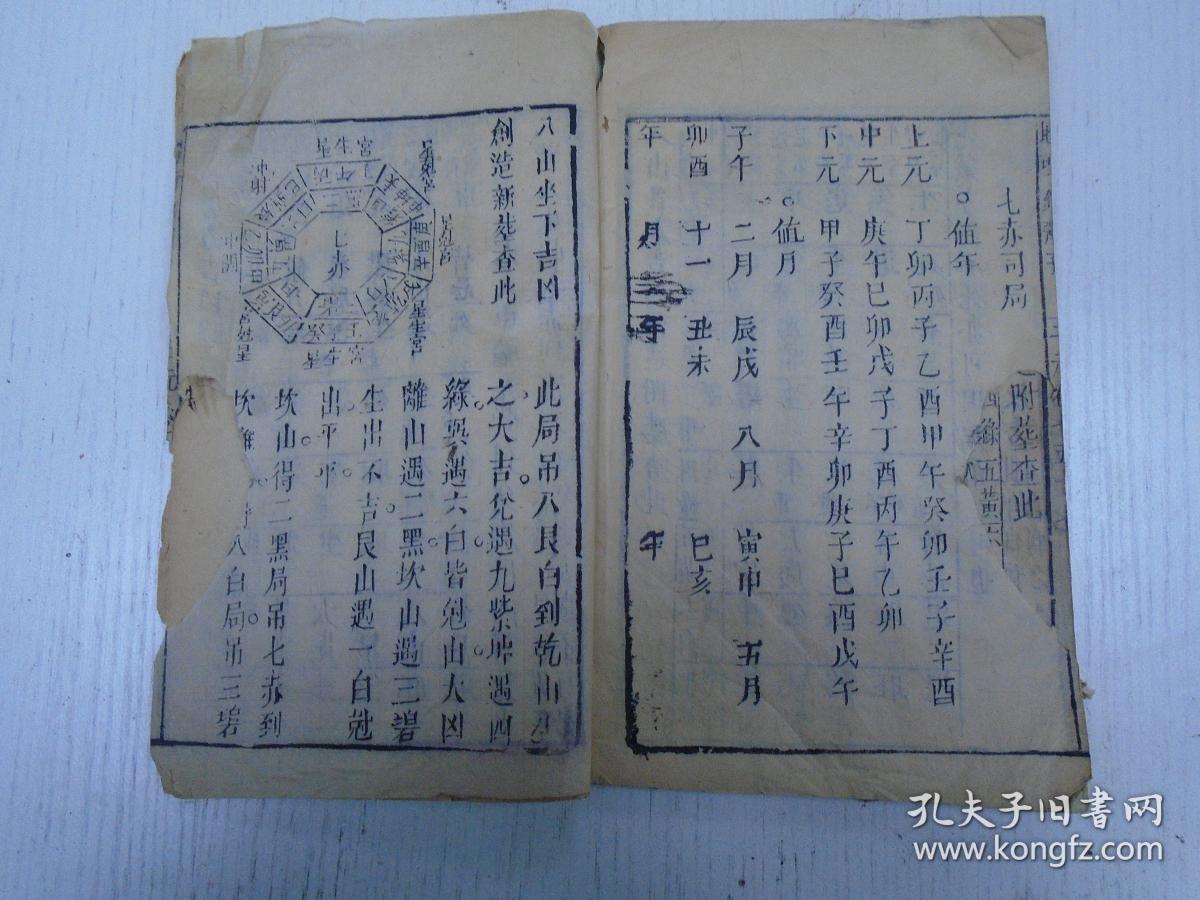 七赤司局
附塟查此
四綠五黃六
○值年
上元 丁卯丙子乙酉甲午癸卯壬子辛酉
中元 庚午巳卯戊子丁酉丙午乙卯
下元 甲子癸酉壬午辛卯庚子巳酉戊午
○值月
子午 二月 辰戊 八月 寅申 五月
卯酉 十一 丑未 巳亥
年 月 年 年
八山坐下吉凶
創造新塟查此
七赤
此局吊八艮白到乾山生
之大吉兊遇九紫坤遇四
綠巽遇六白皆尅山大凶
離山遇二黑坎山遇三碧
生出不吉艮山遇一白尅
出平平
坎山得二黑局吊七赤到
八白局吊三碧
孔夫子旧书网
www.kongfz.com